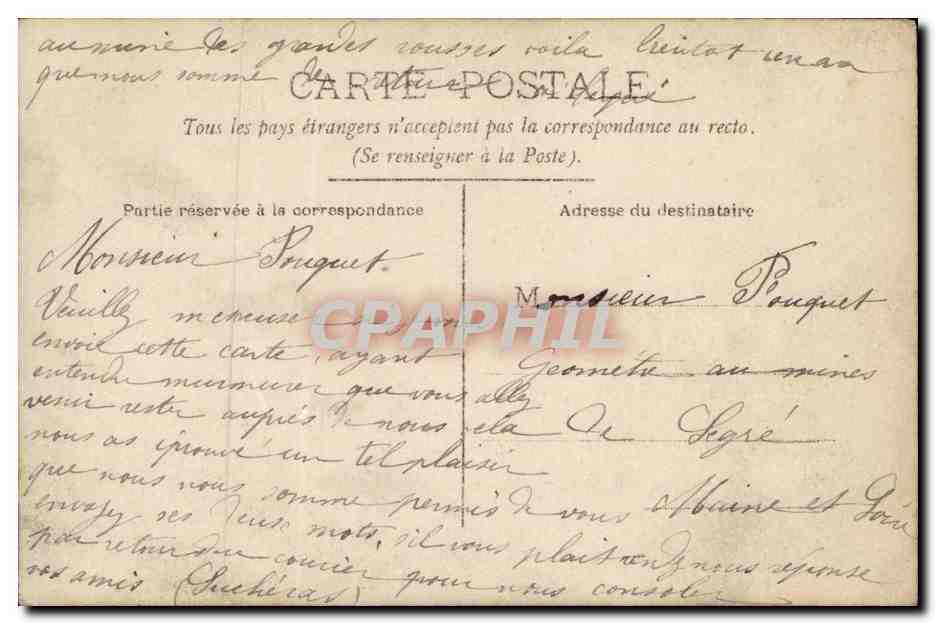 au mine des grandes rousses voila bientot un an
que nous somme de retour Segré
CARTE POSTALE
Tous les pays étrangers n'acceptent pas la correspondance au recto.
(Se renseigner à la Poste).
Partie réservée à la correspondance
Adresse du destinataire
Monsieur Pouquet.
Veuillez m'excuser si
envoie cette carte, ayant
entendu murmurer que vous allez
venir rester auprés de nous cela
nous as éprouvé un tel plaisir
que nous nous somme permis de vous
envoyez ses deux mots, s'il vous plait rendz nous réponse
par retour du courier pour nous consoler
vos amis (Suchéras)
Monsieur Pouquet
Geométre au mines
de Segré
Maine et Loire
CPAPHIL